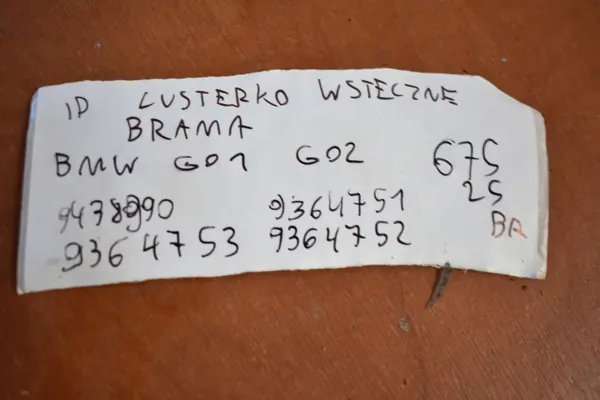 ID LUSTERKO WSTECZNE
BRAMA
BMW G01 G02 675
25
9364751
9364753 9364752 BR